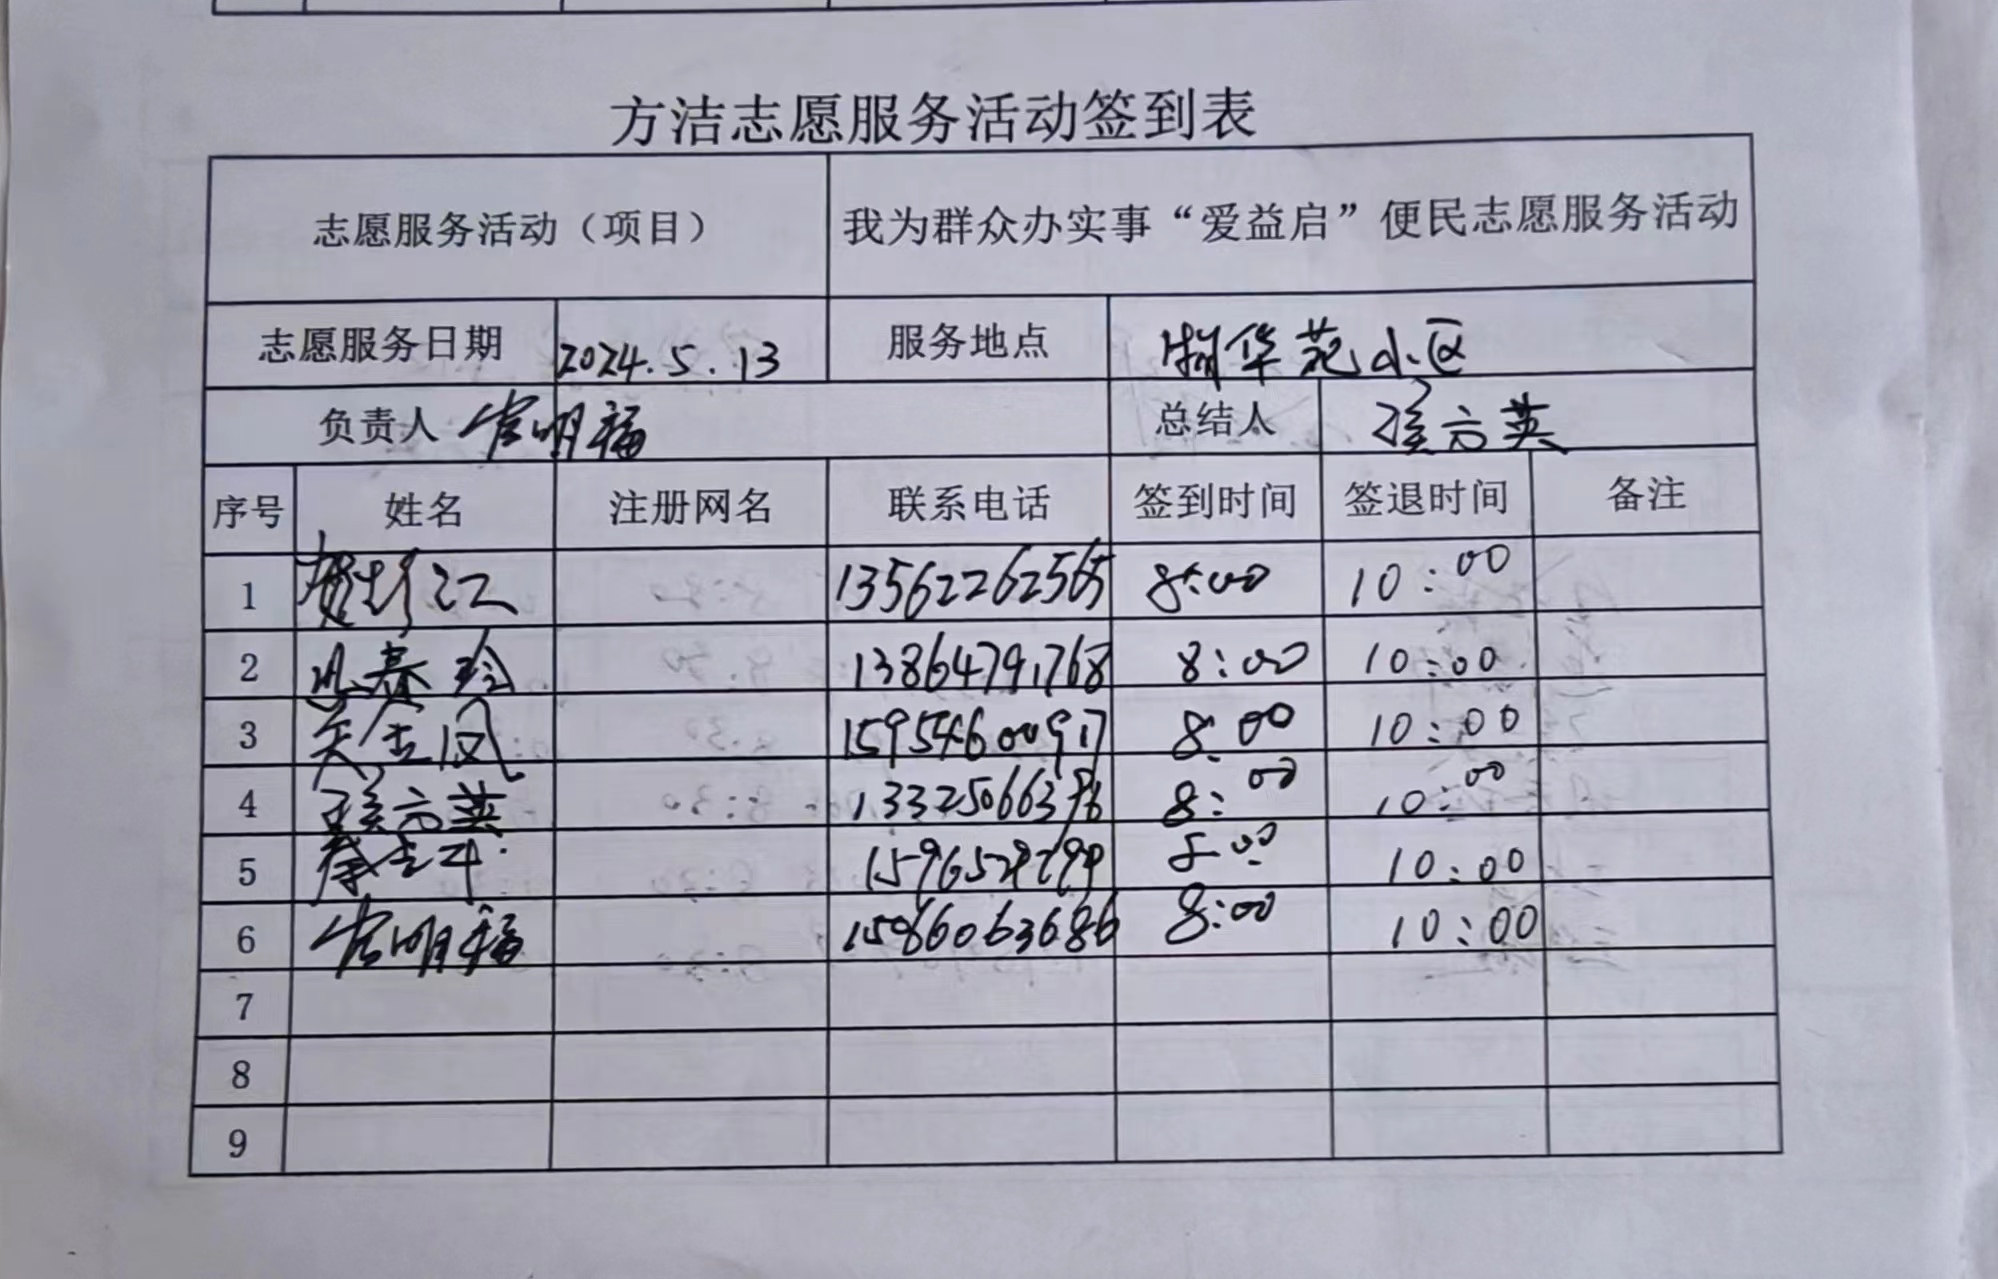 方洁志愿服务活动签到表
志愿服务活动（项目） 我为群众办实事“爱益启”便民志愿服务活动
志愿服务日期 2024.5.13 服务地点 湖华苑小区
负责人 明福 总结人 孙六英
序号 姓名 注册网名 联系电话 签到时间 签退时间 备注
1 江 13562262565 8:00 10:00
2 春玲 13864791768 8:00 10:00
3 凤 15954600917 8:00 10:00
4 孙六英 8:00 10:00
5 10:00
6 明福 15866063686 8:00 10:00
7
8
9